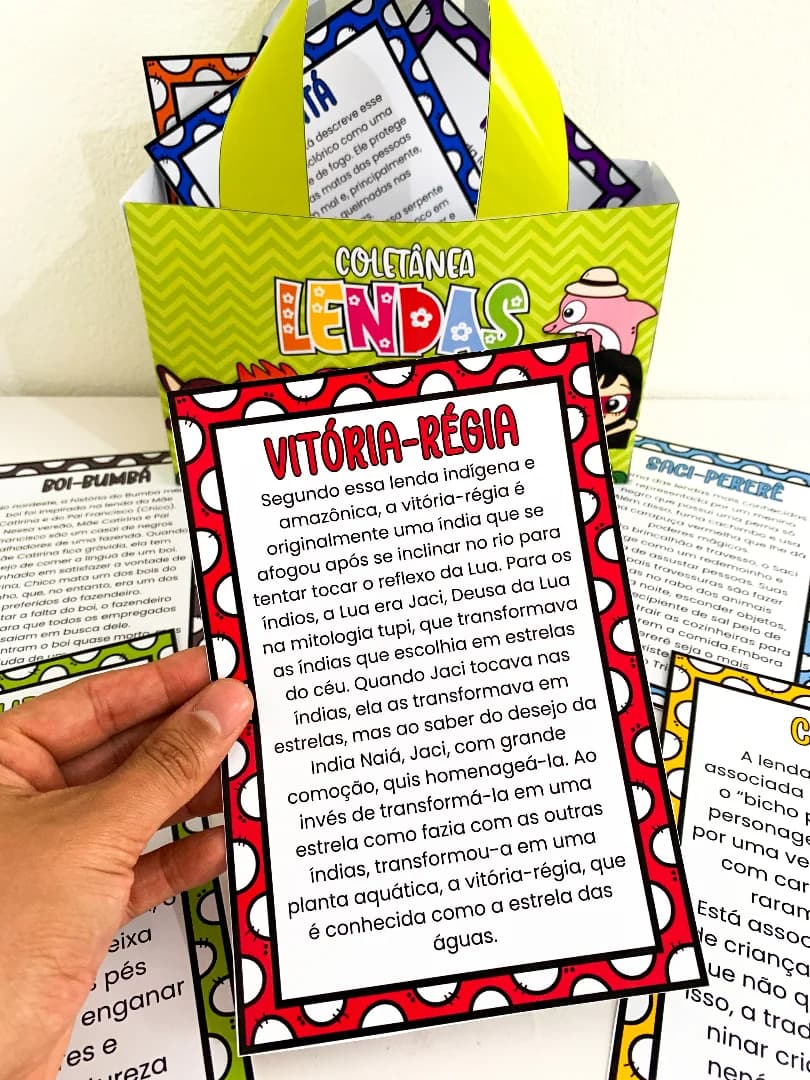 TÁ
descreve esse
clórico como uma
de fogo. Ele protege
as matas das pessoas
mal e, principalmente,
queimadas nas
serpente
em
COLETÂNEA
LENDAS
VITÓRIA-RÉGIA
Segundo essa lenda indígena e
amazônica, a vitória-régia é
originalmente uma índia que se
afogou após se inclinar no rio para
tentar tocar o reflexo da Lua. Para os
índios, a Lua era Jaci, Deusa da Lua
na mitologia tupi, que transformava
as índias que escolhia em estrelas
do céu. Quando Jaci tocava nas
índias, ela as transformava em
estrelas, mas ao saber do desejo da
India Naiá, Jaci, com grande
comoção, quis homenageá-la. Ao
invés de transformá-la em uma
estrela como fazia com as outras
índias, transformou-a em uma
planta aquática, a vitória-régia, que
é conhecida como a estrela das
águas.
BOI-BUMBÁ
nordeste, a história do Bumba me
boi foi inspirada na lenda da Mãe
Catirina e do Pai Francisco (Chico).
Nessa versão, Mãe Catirina e Pai
Francisco são um casal de negros
alhadores de uma fazenda. Quando
Mãe Catirina fica grávida, ela tem
ejo de comer a língua de um boi.
nhado em satisfazer a vontade de
rina, Chico mata um dos bois do
ho, que, no entanto, era um dos
preferidos do fazendeiro.
tar a falta do boi, o fazendeiro
ara que todos os empregados
saiam em busca dele.
ntram o boi quase morto
uda de
SACI-PERERÊ
das lendas mais conhecidas
representada por um menino
negro que possui uma perna só.
disso, fuma cachimbo e usa
carapuça vermelha que lhe dá
poderes mágicos.
brincalhão e travesso, o Saci
como um redemoinho e
de assustar pessoas. Suas
travessuras são fazer
no rabo dos animais
noite, esconder objetos,
recipiente de sal pelo de
trair as cozinheiras para
rem a comida. Embora
ererê seja o mais
existe
Tri
eixa
pés
enganar
es e
ureza
C
A lenda
associada
o "bicho p
personage
por uma ve
com car
raram
Está assoc
e criança
ue não o
isso, a trad
ninar cric
nené